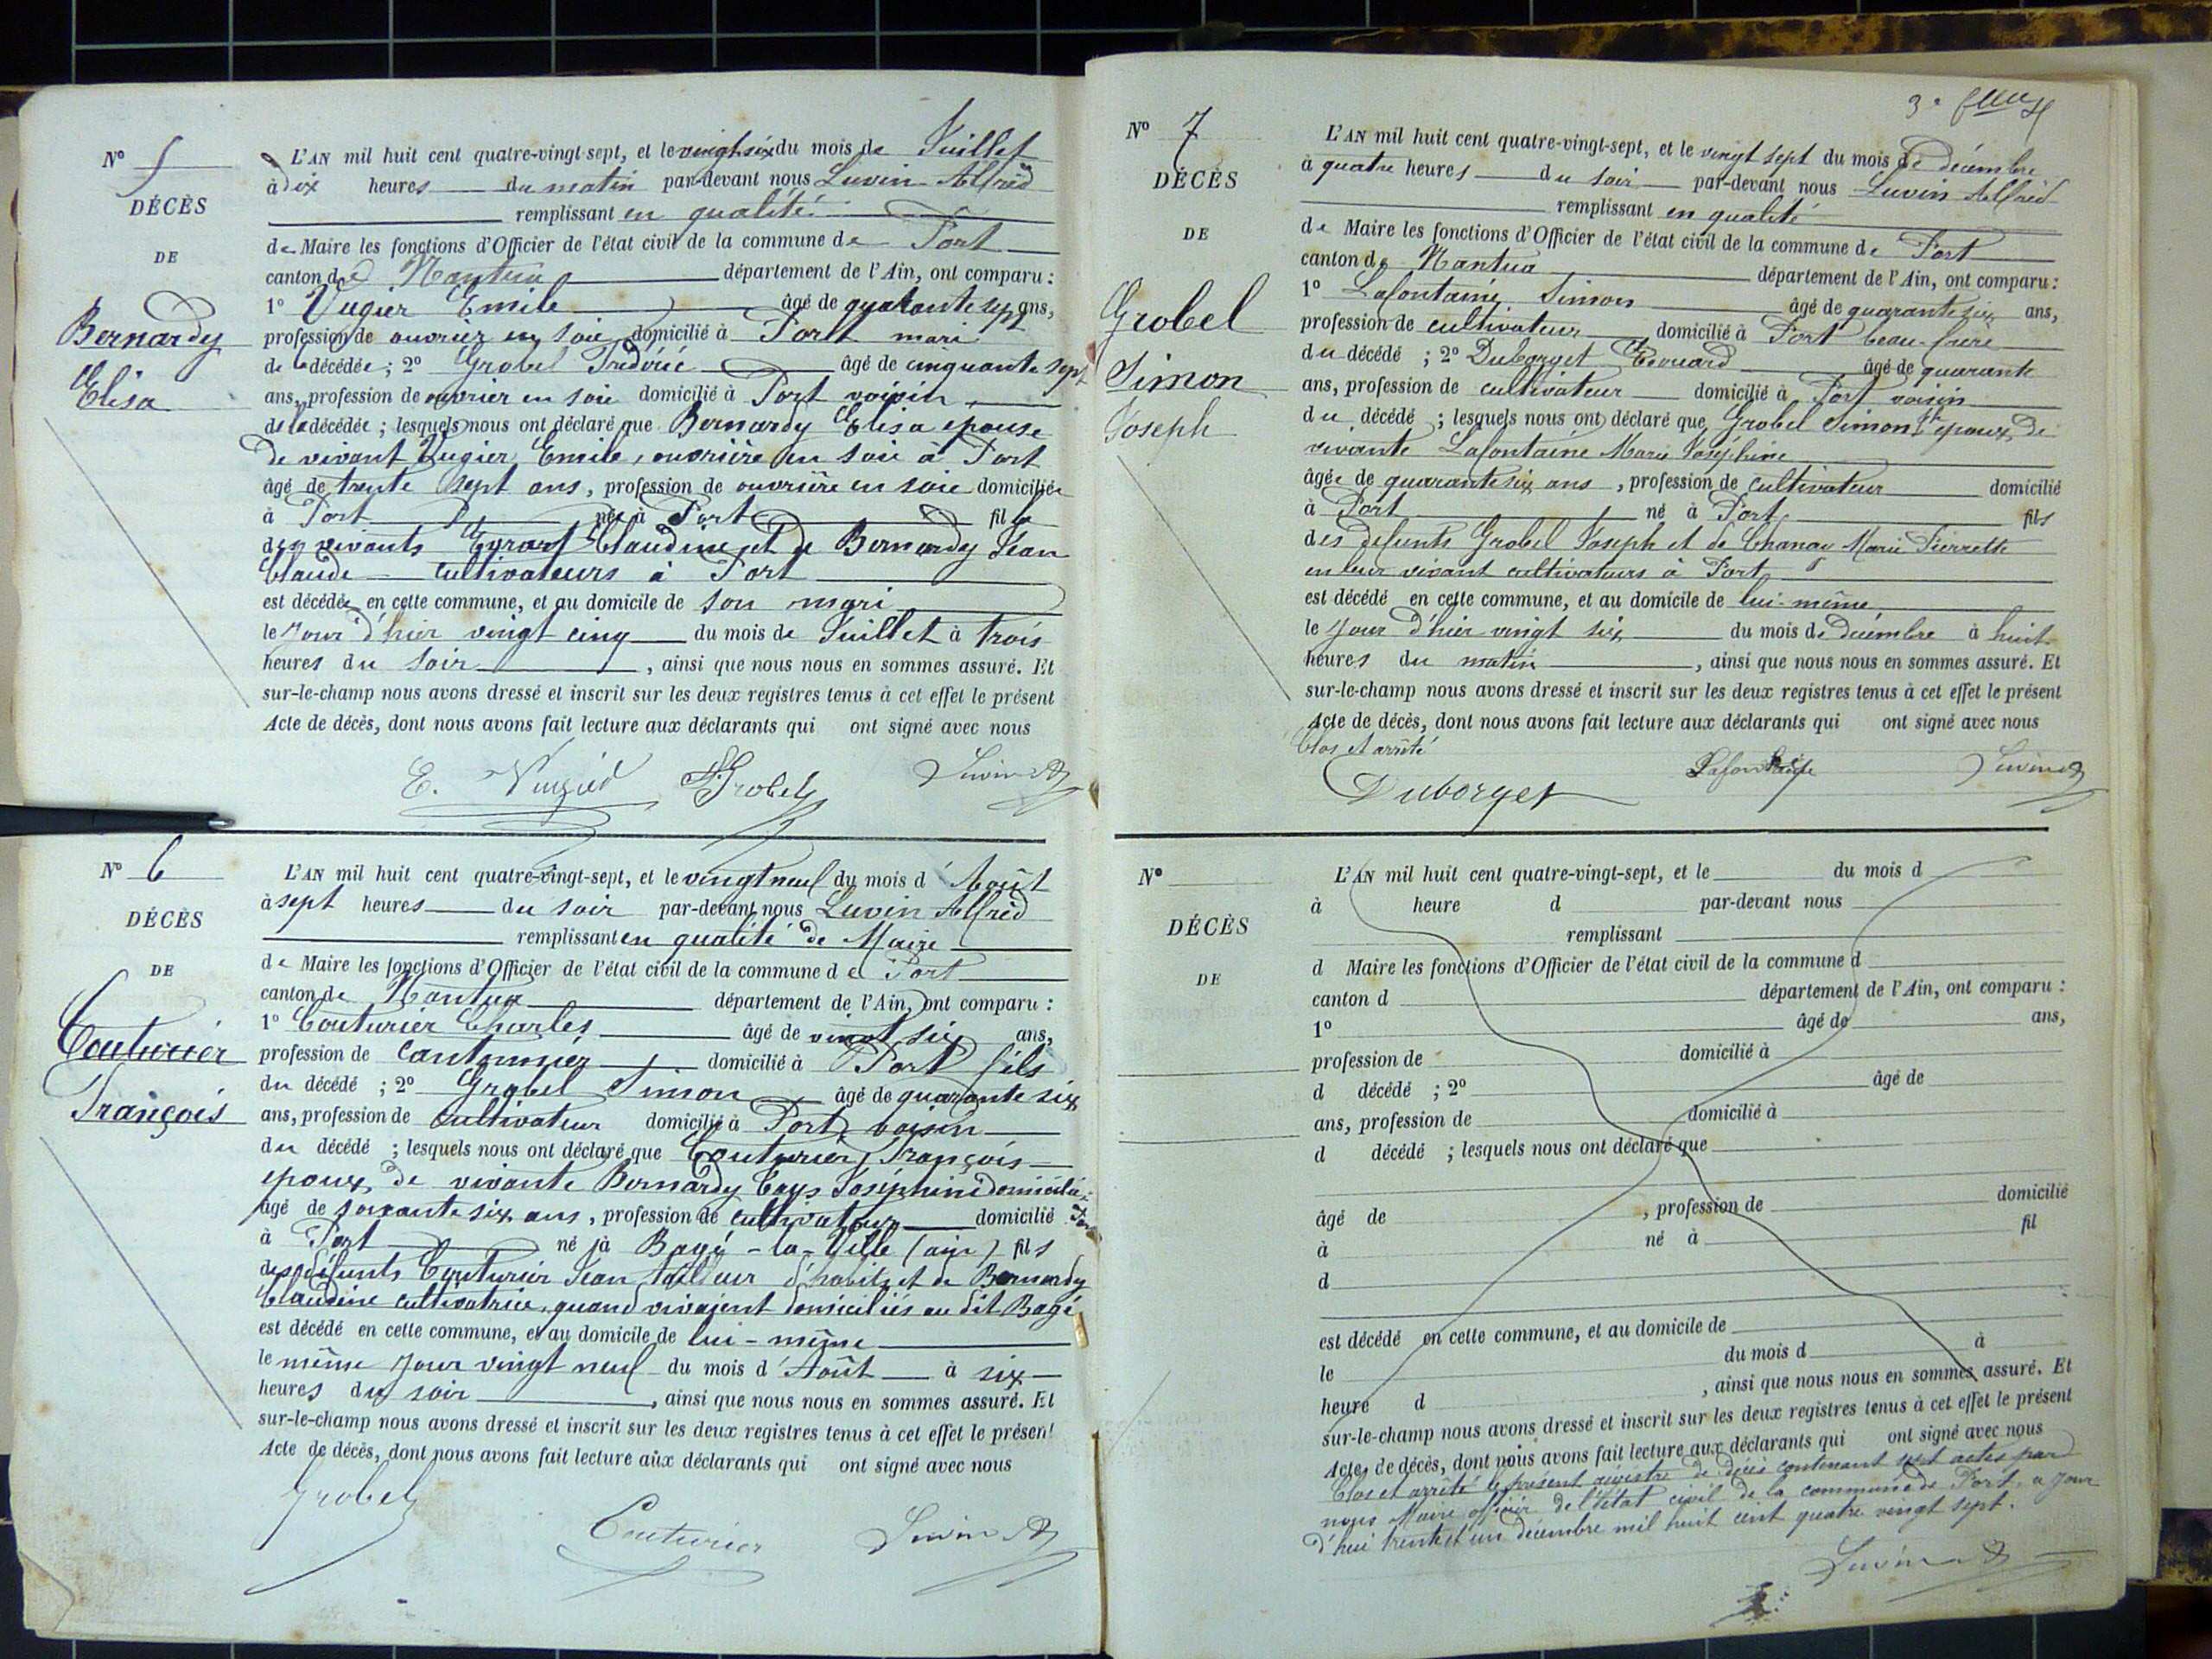 N° 5
DÉCÈS
DE
Bernardy
Elisa
L'AN mil huit cent quatre-vingt-sept, et le vingt six du mois de Juillet
à dix heures du matin par-devant nous Luvin Alfred
remplissant en qualité
de Maire les fonctions d'Officier de l'état civil de la commune de Port
canton de Nantua département de l'Ain, ont comparu :
1° Vugier Emile âgé de quarante sept ans,
profession de ouvrier en soie domicilié à Port mari
de la décédée ; 2° Grobel Frédéric âgé de cinquante sept
ans, profession de ouvrier en soie domicilié à Port voisin
de la décédée ; lesquels nous ont déclaré que Bernardy Elisa epouse
de vivant Vugier Emile, ouvrière en soie à Port
âgé de trente sept ans, profession de ouvrière en soie domiciliée
à Port née à Port fille
des vivants Claudine et de Bernardy Jean
Claude cultivateurs à Port
est décédée en cette commune, et au domicile de son mari
le jour d'hier vingt cinq du mois de Juillet à trois
heures du soir, ainsi que nous nous en sommes assuré. Et
sur-le-champ nous avons dressé et inscrit sur les deux registres tenus à cet effet le présent
Acte de décès, dont nous avons fait lecture aux déclarants qui ont signé avec nous
E. Grobel Luvin A
N° 6
DÉCÈS
DE
Couturier
François
L'AN mil huit cent quatre-vingt-sept, et le vingt neuf du mois d'Août
à sept heures du soir par-devant nous Luvin Alfred
remplissant en qualité de Maire
de Maire les fonctions d'Officier de l'état civil de la commune de Port
canton de Nantua département de l'Ain, ont comparu :
1° Couturier Charles âgé de vingt six ans,
profession de cantonnier domicilié à Port fils
du décédé ; 2° Grobel Simon âgé de quarante six
ans, profession de cultivateur domicilié à Port voisin
du décédé ; lesquels nous ont déclaré que Couturier François
epoux de vivante Bernardy Joséphine domiciliée à Port
âgé de soixante six ans, profession de cultivateur domicilié
à Port né à Bagé-la-Ville (ain) fils
des défunts Couturier Jean tailleur d'habits et de Bernardy
Claudine cultivatrice, quand vivaient domiciliés au dit Bagé
est décédé en cette commune, et au domicile de lui-même
le même jour vingt neuf du mois d'Août à six
heures du soir, ainsi que nous nous en sommes assuré. Et
sur-le-champ nous avons dressé et inscrit sur les deux registres tenus à cet effet le présent
Acte de décès, dont nous avons fait lecture aux déclarants qui ont signé avec nous
Grobel Couturier Luvin A
3e
N° 7
DÉCÈS
DE
Grobel
Simon
Joseph
L'AN mil huit cent quatre-vingt-sept, et le vingt sept du mois de décembre
à quatre heures du soir par-devant nous Luvin Alfred
remplissant en qualité
de Maire les fonctions d'Officier de l'état civil de la commune de Port
canton de Nantua département de l'Ain, ont comparu :
1° Lafontaine Simon âgé de quarante six ans,
profession de cultivateur domicilié à Port beau-frère
du décédé ; 2° Duborget Edouard âgé de quarante
ans, profession de cultivateur domicilié à Port voisin
du décédé ; lesquels nous ont déclaré que Grobel Simon Jh epoux de
vivante Lafontaine Marie Joséphine
âgé de quarante six ans, profession de cultivateur domicilié
à Port né à Port fils
des défunts Grobel Joseph et de Chanay Marie Pierrette
en leur vivant cultivateurs à Port
est décédé en cette commune, et au domicile de lui-même
le jour d'hier vingt six du mois de décembre à huit
heures du matin, ainsi que nous nous en sommes assuré. Et
sur-le-champ nous avons dressé et inscrit sur les deux registres tenus à cet effet le présent
Acte de décès, dont nous avons fait lecture aux déclarants qui ont signé avec nous
Clos et arrêté
Duborget Lafontaine Luvin A
N°
DÉCÈS
DE
L'AN mil huit cent quatre-vingt-sept, et le du mois d
à heure d par-devant nous
remplissant
d Maire les fonctions d'Officier de l'état civil de la commune d
canton d département de l'Ain, ont comparu :
1° âgé de ans,
profession de domicilié à
d décédé ; 2° âgé de
ans, profession de domicilié à
d décédé ; lesquels nous ont déclaré que
âgé de , profession de domicilié
à né à fil
d
est décédé en cette commune, et au domicile de
le du mois d à
heure d , ainsi que nous nous en sommes assuré. Et
sur-le-champ nous avons dressé et inscrit sur les deux registres tenus à cet effet le présent
Acte de décès, dont nous avons fait lecture aux déclarants qui ont signé avec nous
Clos et arrêté le présent registre de décès contenant sept actes par
nous Maire officier de l'état civil de la commune de Port, a jour
d'hui trente et un décembre mil huit cent quatre vingt sept.
Luvin A